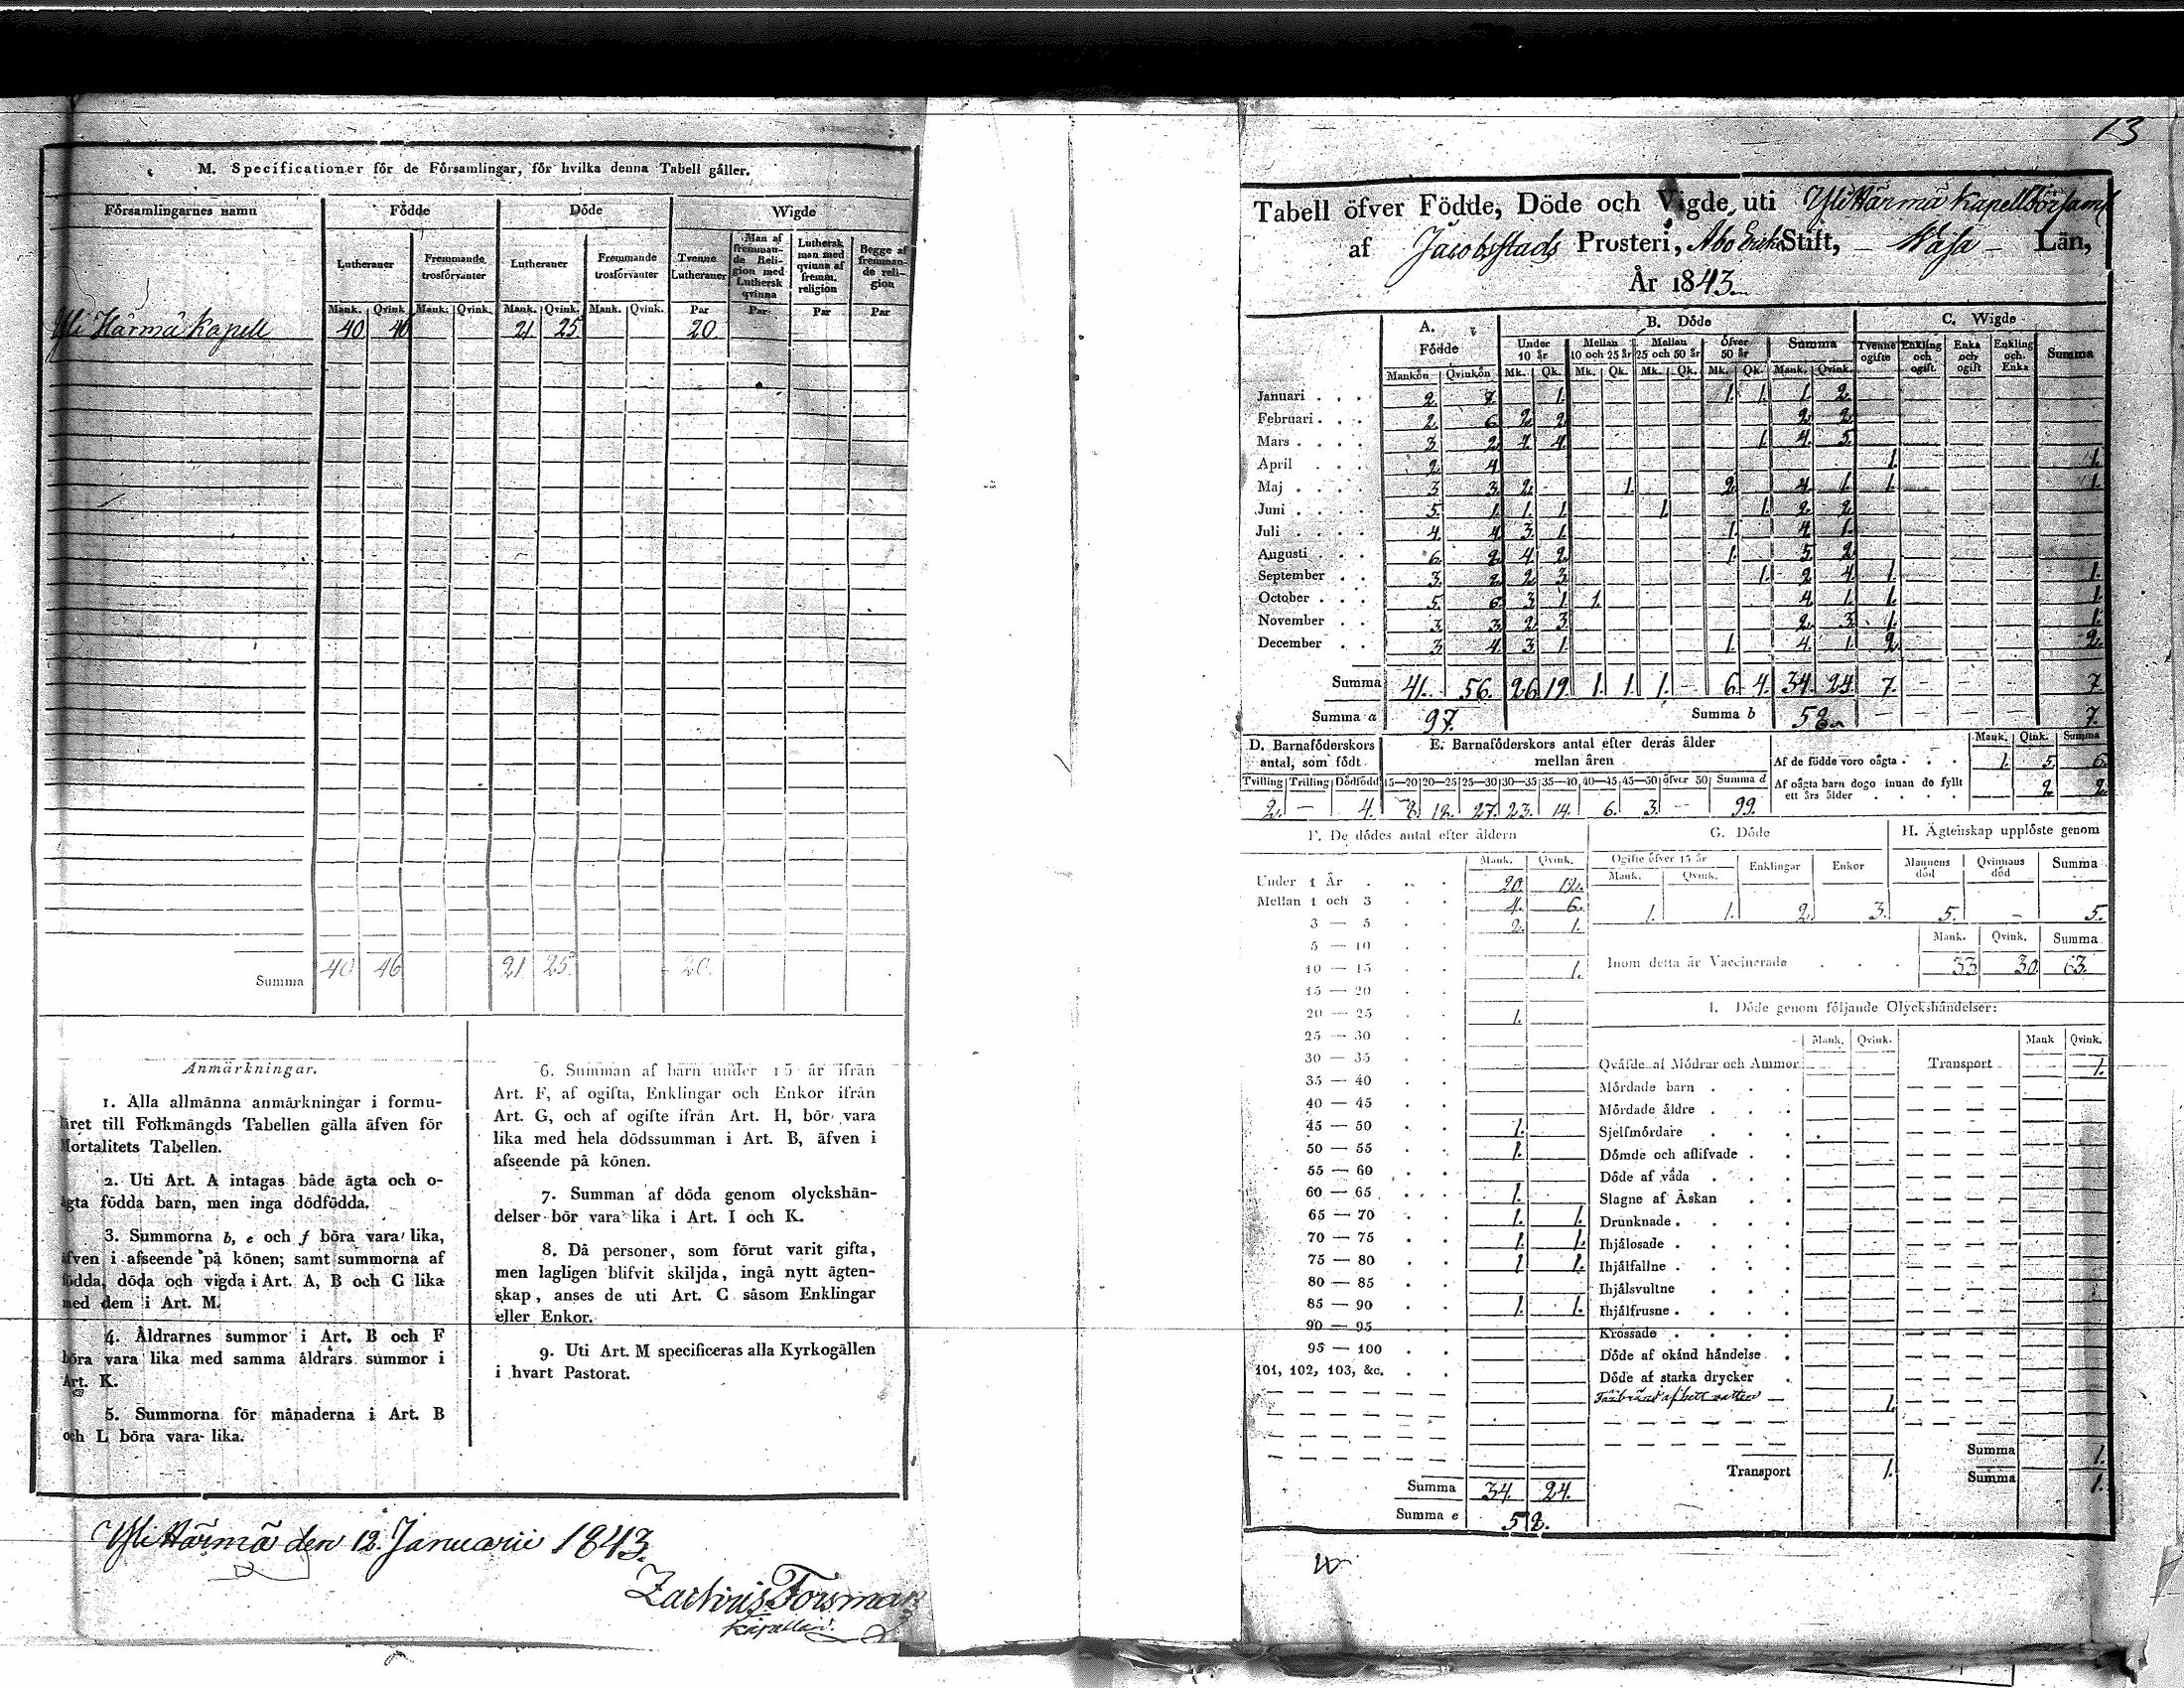 M. Specificationer för de Församlingar, för hvilka denna Tabell gäller.
Församlingarnes namn Födde Döde Wigde
Lutheraner Fremmande trosförvanter Lutheraner Fremmande trosförvanter Tvenne Lutheraner Man af fremmande Religion med Luthersk qvinna Luthersk man med qvinna af fremm. religion Begge af fremmande religion
Mank. Qvink. Mank. Qvink. Mank. Qvink. Mank. Qvink. Par Par Par Par
Yli Härmä Kapell 40 46 21 25. 20.
Summa 40 46 21. 25. 20.
Anmärkningar.
1. Alla allmänna anmärkningar i formu-
läret till Folkmängds Tabellen gälla äfven för
Mortalitets Tabellen.
2. Uti Art. A intagas både ägta och o-
ägta födda barn, men inga dödfödda.
3. Summorna b, e och f böra vara lika,
äfven i afseende på könen; samt summorna af
födda, döda och vigda i Art. A, B och C lika
med dem i Art. M.
4. Åldrarnes summor i Art. B och F
böra vara lika med samma åldrars summor i
Art. K.
5. Summorna för månaderna i Art. B
och L böra vara lika.
6. Summan af barn under 15 år ifrån
Art. F, af ogifta, Enklingar och Enkor ifrån
Art. G, och af ogifte ifrån Art. H, bör vara
lika med hela dödssumman i Art. B, äfven i
afseende på könen.
7. Summan af döda genom olyckshän-
delser bör vara lika i Art. I och K.
8. Då personer, som förut varit gifta,
men lagligen blifvit skiljda, ingå nytt ägten-
skap, anses de uti Art. C såsom Enklingar
eller Enkor.
9. Uti Art. M specificeras alla Kyrkogällen
i hvart Pastorat.
Yli Härmä den 12. Januarii 1843.
Forsman
13
Tabell öfver Födde, Döde och Vigde uti Yli Härmä Kapellförsaml
af Jacobstads Prosteri, Åbo Erke Stift, Wasa Län,
År 1843.
A. Födde B. Döde C. Wigde
Under 10 år Mellan 10 och 25 år Mellan 25 och 50 år Öfver 50 år Summa Tvenne ogifte Enkling och ogift Enka och ogift Enkling och Enka Summa
Mankön Qvinkön Mk. Qk. Mk. Qk. Mk. Qk. Mk. Qk. Mank. Qvink.
Januari 2. 7. 1. 1. 1. 1. 2.
Februari 2. 6. 2. 2. 2. 2.
Mars 3. 2. 4. 4. 1. 4. 5.
April 2. 4. 1. 1.
Maj 3. 3. 2. 1. 2. 4. 1. 1. 1.
Juni 5. 1. 1. 1. 1. 1. 2. 2.
Juli 4. 4. 3. 1. 1. 4. 1.
Augusti 6. 2. 4. 2. 1. 5. 2.
September 3. 2. 2. 3. 1. 2. 4. 1. 1.
October 5. 6. 3. 1. 1. 4. 1. 1. 1.
November 3. 3. 2. 3. 2. 3. 1. 1.
December 3. 4. 3. 1. 1. 4. 1. 2. 2.
Summa 41. 56. 26. 19. 1. 1. 1. – 6. 4. 34. 24. 7. – – – 7.
Summa a 97. Summa b 58. – – – – 7.
D. Barnaföderskors antal, som födt
Tvilling Trilling Dödfödd
2. – 4.
E. Barnaföderskors antal efter deras ålder mellan åren
15—20 20—25 25—30 30—35 35—40 40—45 45—50 öfver 50 Summa d
8. 18. 27. 23. 14. 6. 3. – 99.
Mank. Qink. Summa
Af de födde voro oägta 1. 5. 6.
Af oägta barn dogo innan de fyllt ett års ålder 2. 2.
F. De dödes antal efter åldern
Mank. Qvink.
Under 1 År 20. 12.
Mellan 1 och 3 4. 6.
3 — 5 2. 1.
5 — 10
10 — 15 1.
15 — 20
20 — 25 1.
25 — 30
30 — 35
35 — 40
40 — 45
45 — 50 1.
50 — 55 1.
55 — 60
60 — 65 1.
65 — 70 1. 1.
70 — 75 1. 1.
75 — 80 1 1.
80 — 85
85 — 90 1. 1.
90 — 95
95 — 100
101, 102, 103, &c.
Summa 34. 24.
Summa e 58.
G. Döde
Ogifte öfver 15 år Enklingar Enkor
Mank. Qvink.
1. 1. 2. 3.
H. Ägtenskap upplöste genom
Mannens död Qvinnans död Summa
5. – 5.
Mank. Qvink. Summa
Inom detta år Vaccinerade 33 30. 63.
I. Döde genom följande Olyckshändelser:
Mank. Qvink. Mank Qvink.
Qväfde af Mödrar och Ammor Transport 1.
Mördade barn
Mördade äldre
Sjelfmördare
Dömde och aflifvade
Döde af våda
Slagne af Åskan
Drunknade
Ihjälosade
Ihjälfallne
Ihjälsvultne
Ihjälfrusne
Krossade
Döde af okänd händelse
Döde af starka drycker
Förbränd af hett vatten 1.
Summa 1.
Transport 1. Summa 1.